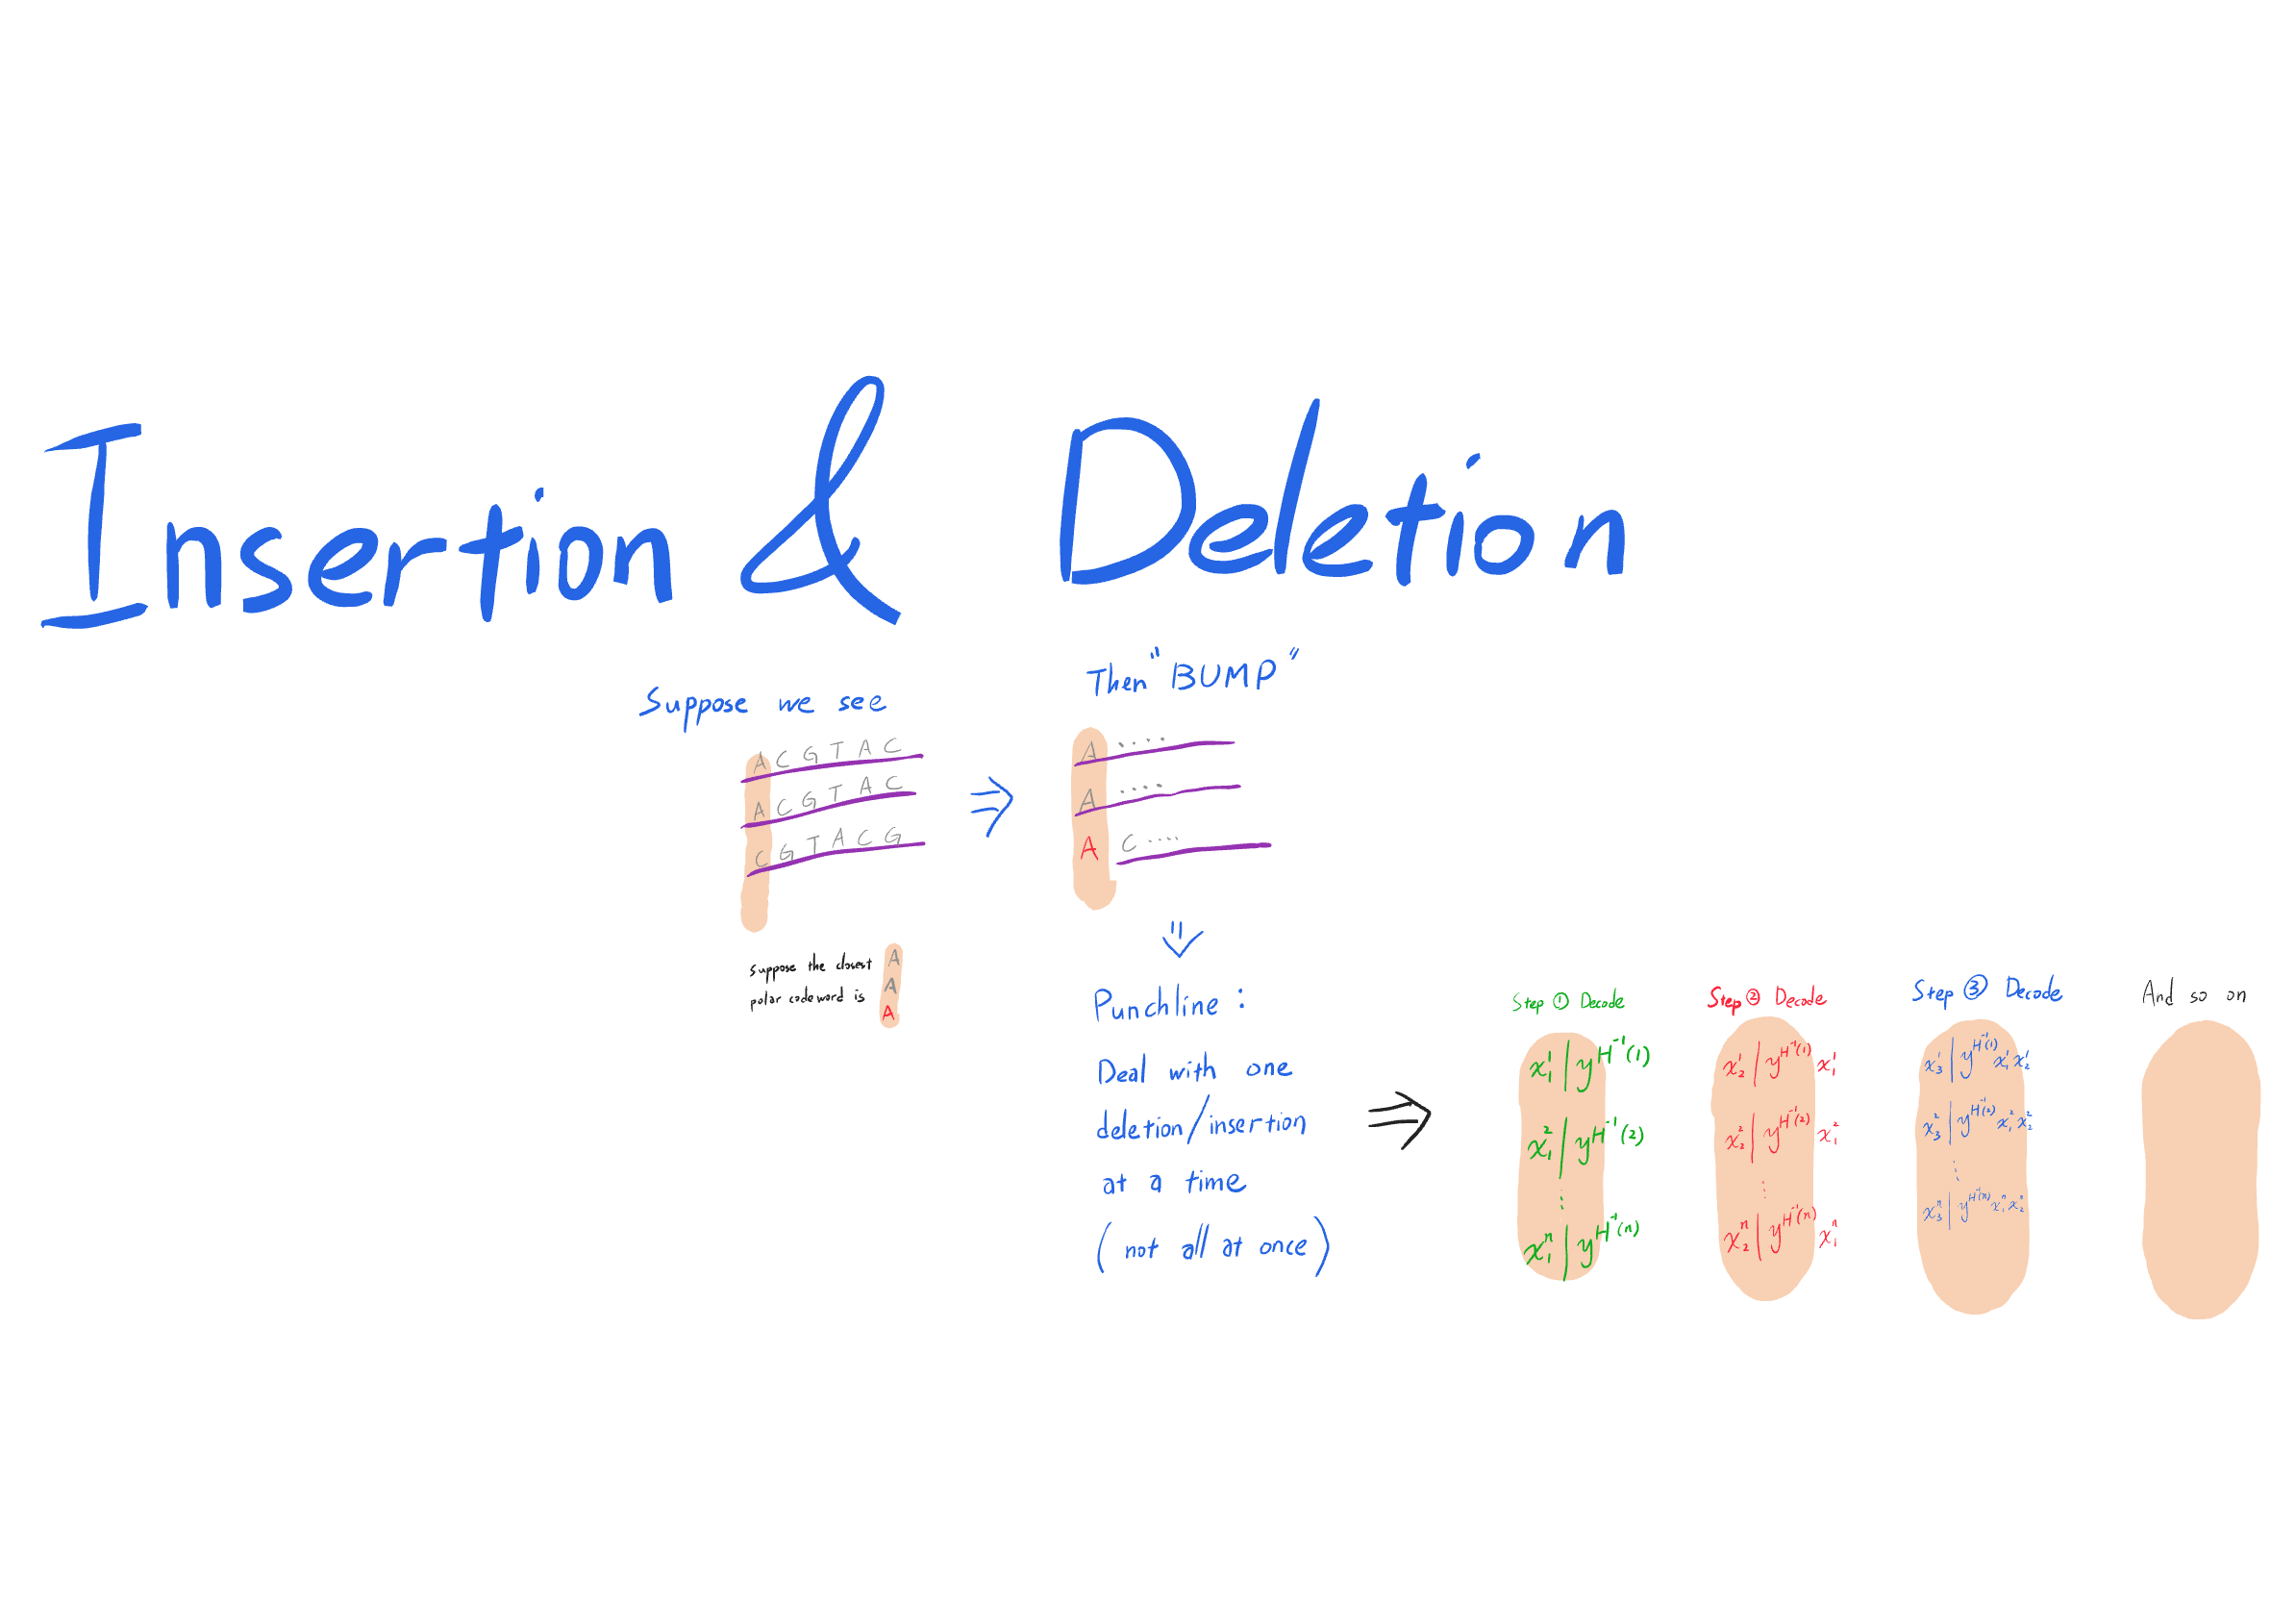 Insertion & Deletion
Suppose we see
A C G T A C
A C G T A C
C G T A C G
suppose the closest
polar codeword is
A
A
A
⇒
Then "BUMP"
A ....
A ....
A C ....
⇓
Punchline :
Deal with one
deletion/insertion
at a time
( not all at once )
⇒
Step ① Decode
x₁¹ | y^{H⁻¹(1)}
x₁² | y^{H⁻¹(2)}
⋮
x₁ⁿ | y^{H⁻¹(n)}
Step ② Decode
x₂¹ | y^{H⁻¹(1)} x₁¹
x₂² | y^{H⁻¹(2)} x₁²
⋮
x₂ⁿ | y^{H⁻¹(n)} x₁ⁿ
Step ③ Decode
x₃¹ | y^{H⁻¹(1)} x₁¹ x₂¹
x₃² | y^{H⁻¹(2)} x₁² x₂²
⋮
x₃ⁿ | y^{H⁻¹(n)} x₁ⁿ x₂ⁿ
And so on